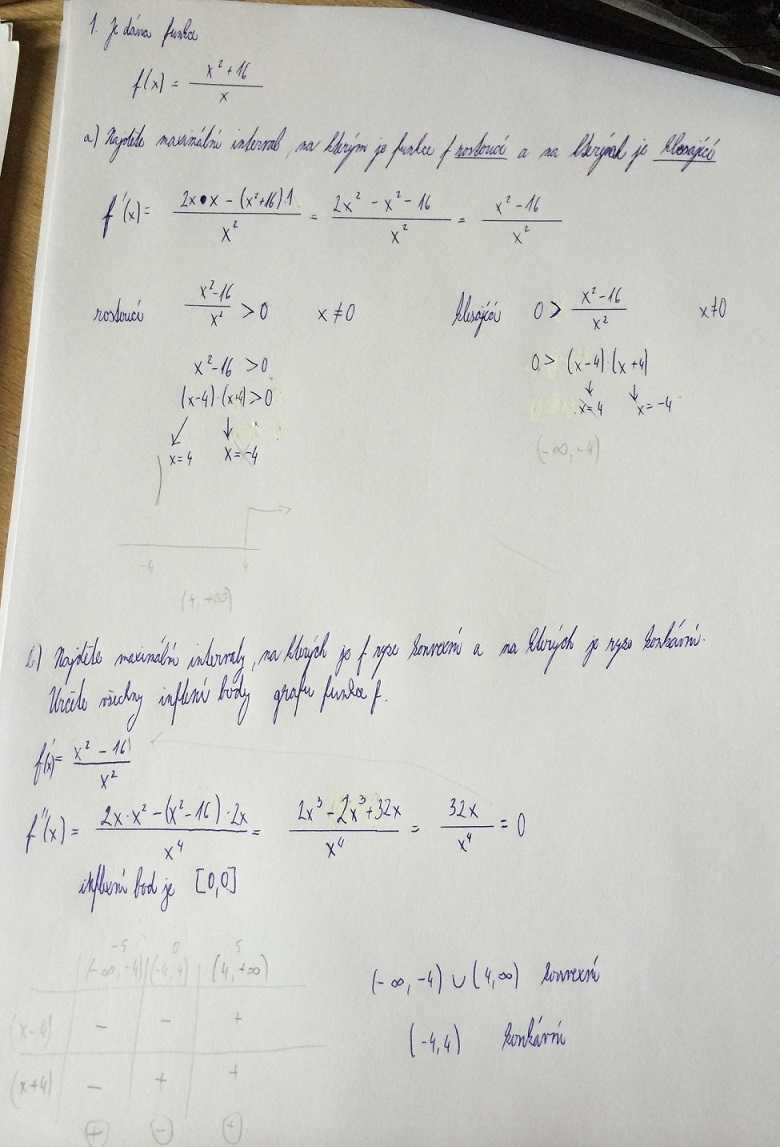 1. Je dána funkce
f(x) = (x² + 16) / x
a) Najděte maximální interval, na kterým je funkce f rostoucí a na kterých je klesající
f'(x) = (2x • x − (x² + 16) · 1) / x² = (2x² − x² − 16) / x² = (x² − 16) / x²
rostoucí (x² − 16) / x² > 0 x ≠ 0
klesající 0 > (x² − 16) / x² x ≠ 0
x² − 16 > 0
(x−4) · (x+4) > 0
↙ ↓
x = 4 x = −4
0 > (x−4) · (x+4)
↓ ↓
x = 4 x = −4
(−∞, −4)
−4 4
(4, +∞)
b) Najděte maximální intervaly, na kterých je f ryze konvexní a na kterých je ryze konkávní.
Určete všechny inflení body grafu funkce f.
f'(x) = (x² − 16) / x²
f''(x) = (2x · x² − (x² − 16) · 2x) / x⁴ = (2x³ − 2x³ + 32x) / x⁴ = 32x / x⁴ = 0
inflexní bod je [0,0]
−5 0 5
(−∞, −4) (−4, 4) (4, +∞)
(x−4) − − +
(x+4) − + +
+ − +
(−∞, −4) ∪ (4, ∞) konvexní
(−4, 4) konkávní